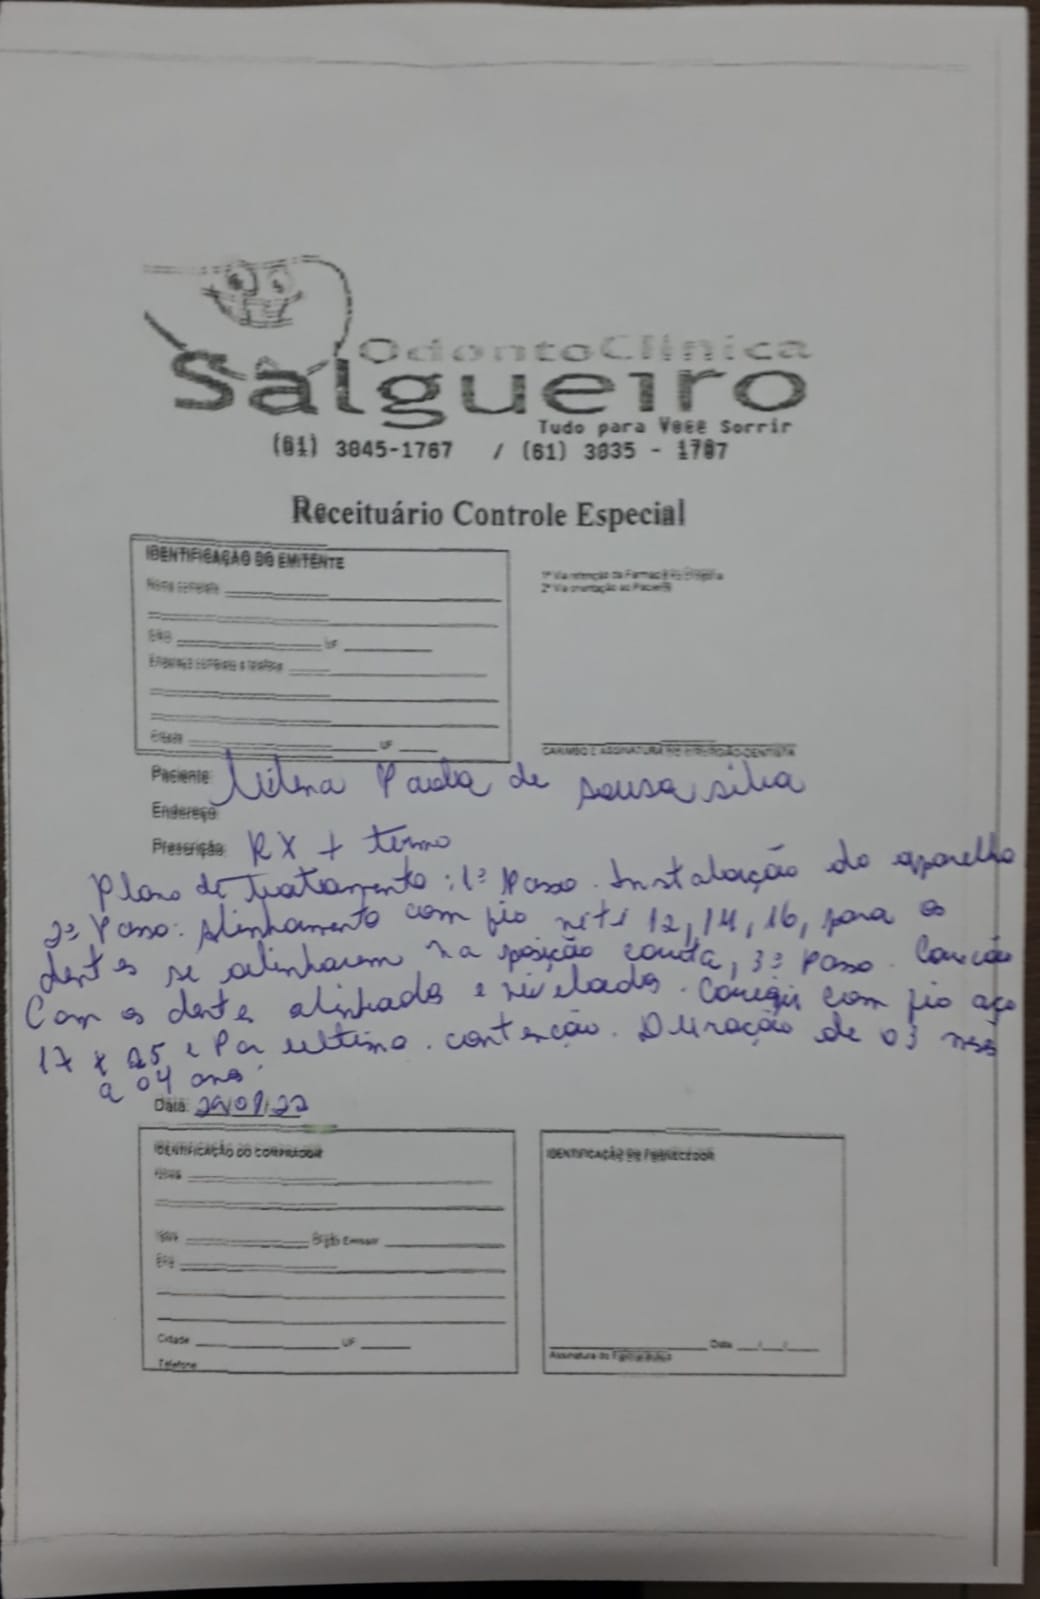 OdontoClínica
Salgueiro
Tudo para Você Sorrir
(61) 3045-1767 / (61) 3035 - 1787
Receituário Controle Especial
IDENTIFICAÇÃO DO EMITENTE
Nome completo
UF
Endereço completo e telefone
Cidade UF
1ª Via retenção da Farmácia ou Drogaria
2ª Via orientação ao Paciente
CARIMBO E ASSINATURA DO CIRURGIÃO DENTISTA
Paciente: Milena Paola de Sousa Silva
Endereço:
Prescrição: RX + termo
Plano de tratamento: 1º Passo. Instalação do aparelho
2º Passo: Alinhamento com fio niti 12, 14, 16, para os
dentes se alinharem na posição correta, 3º Passo.
Com os dentes alinhados e nivelados. Corrigir com fio aço
17 x 25 e Por ultimo. contenção. Duração de 03
a 04 anos.
Data: 29/09/22
IDENTIFICAÇÃO DO COMPRADOR
Nome
Órgão Emissor
Cidade UF
Telefone
IDENTIFICAÇÃO DO FORNECEDOR
Assinatura do Farmacêutico Data / /